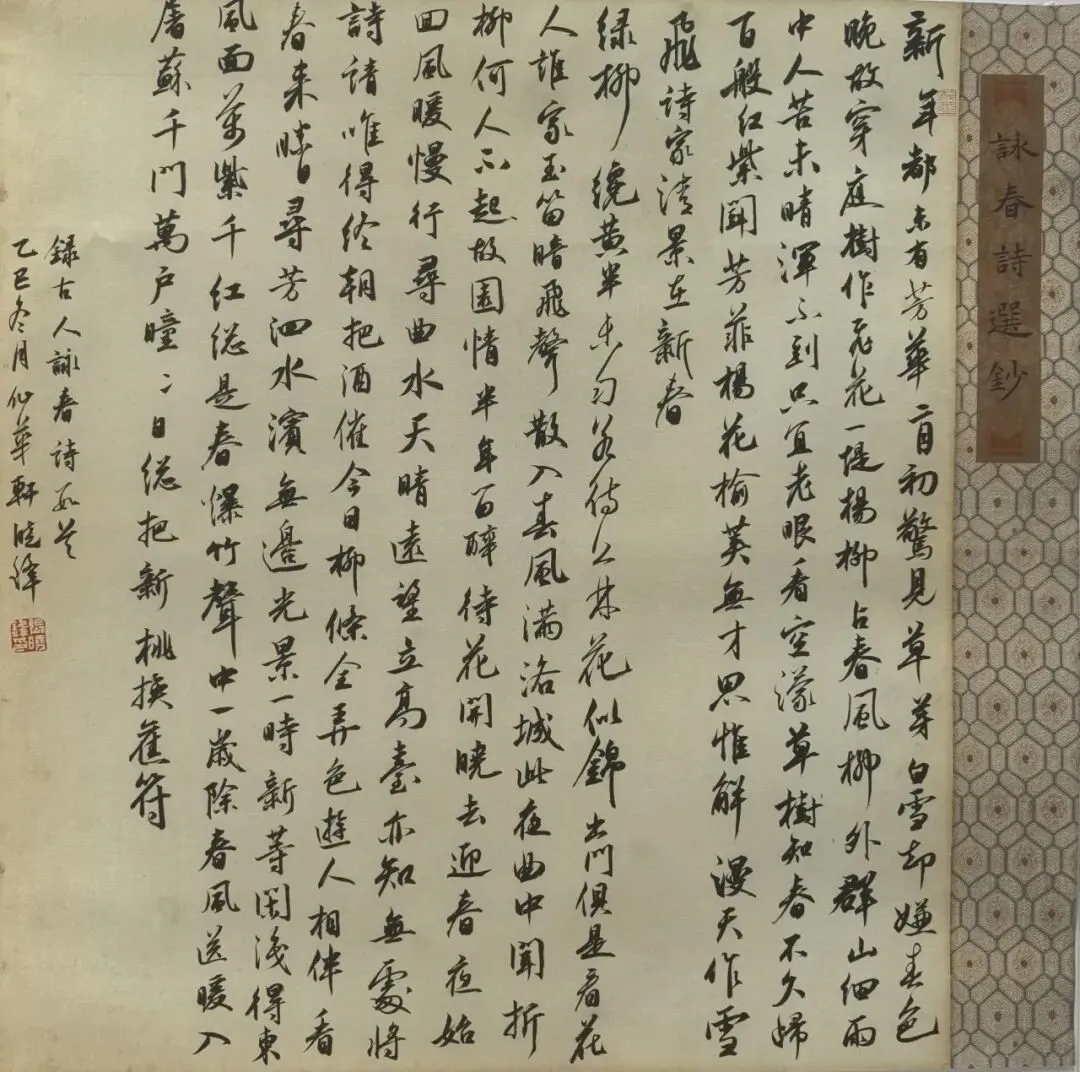 詠春詩選鈔
新年都未有芳華二月初驚見草芽白雪却嫌春色
晚故穿庭樹作飛花一堤楊柳占春風柳外群山細雨
中人苦未晴渾不到只宜老眼看空濛草樹知春不久歸
百般红紫闘芳菲楊花榆莢無才思惟解漫天作雪
飛詩家清景在新春
绿柳纔黄半未匀若待上林花似錦出門俱是看花
人誰家玉笛暗飛聲散入春風满洛城此夜曲中聞折
柳何人不起故園情半年百醉待花開曉去迎春夜始
回風暖慢行尋曲水天晴遠望立高臺亦知無處將
詩請唯得终朝把酒催今日柳條全弄色遊人相伴看
春来勝日尋芳泗水濱無邊光景一時新等閑識得東
風面萬紫千红總是春爆竹聲中一歲除春風送暖入
屠蘇千門萬户曈〻日總把新桃換舊符
録古人詠春詩
乙巳冬月仙華軒曉鋒